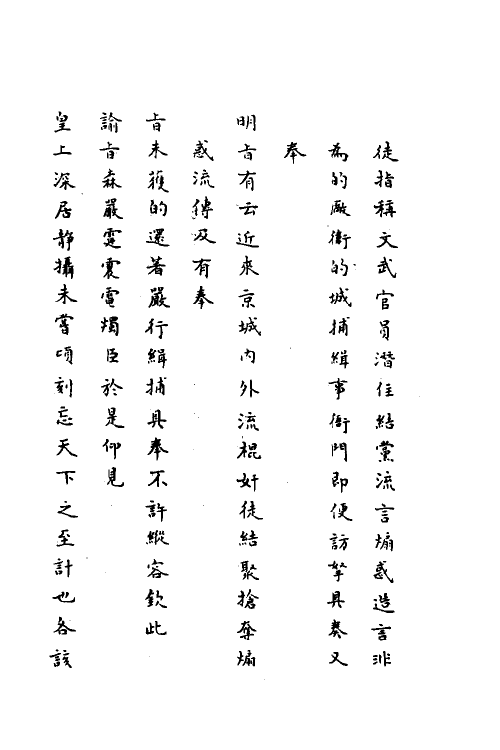 徒指稱文武官員潛住結黨流言煽惑造言非
為的厰衛的城捕緝事衙門即便訪拏具奏又
奉
明旨有云近來京城內外流棍奸徒結聚搶奪煽
惑流傳及有奉
旨未獲的還著嚴行緝捕具奉不許縱容欽此
諭旨森嚴霆震電燭臣於是仰見
皇上深居靜攝未嘗頃刻忘天下之至計也各該